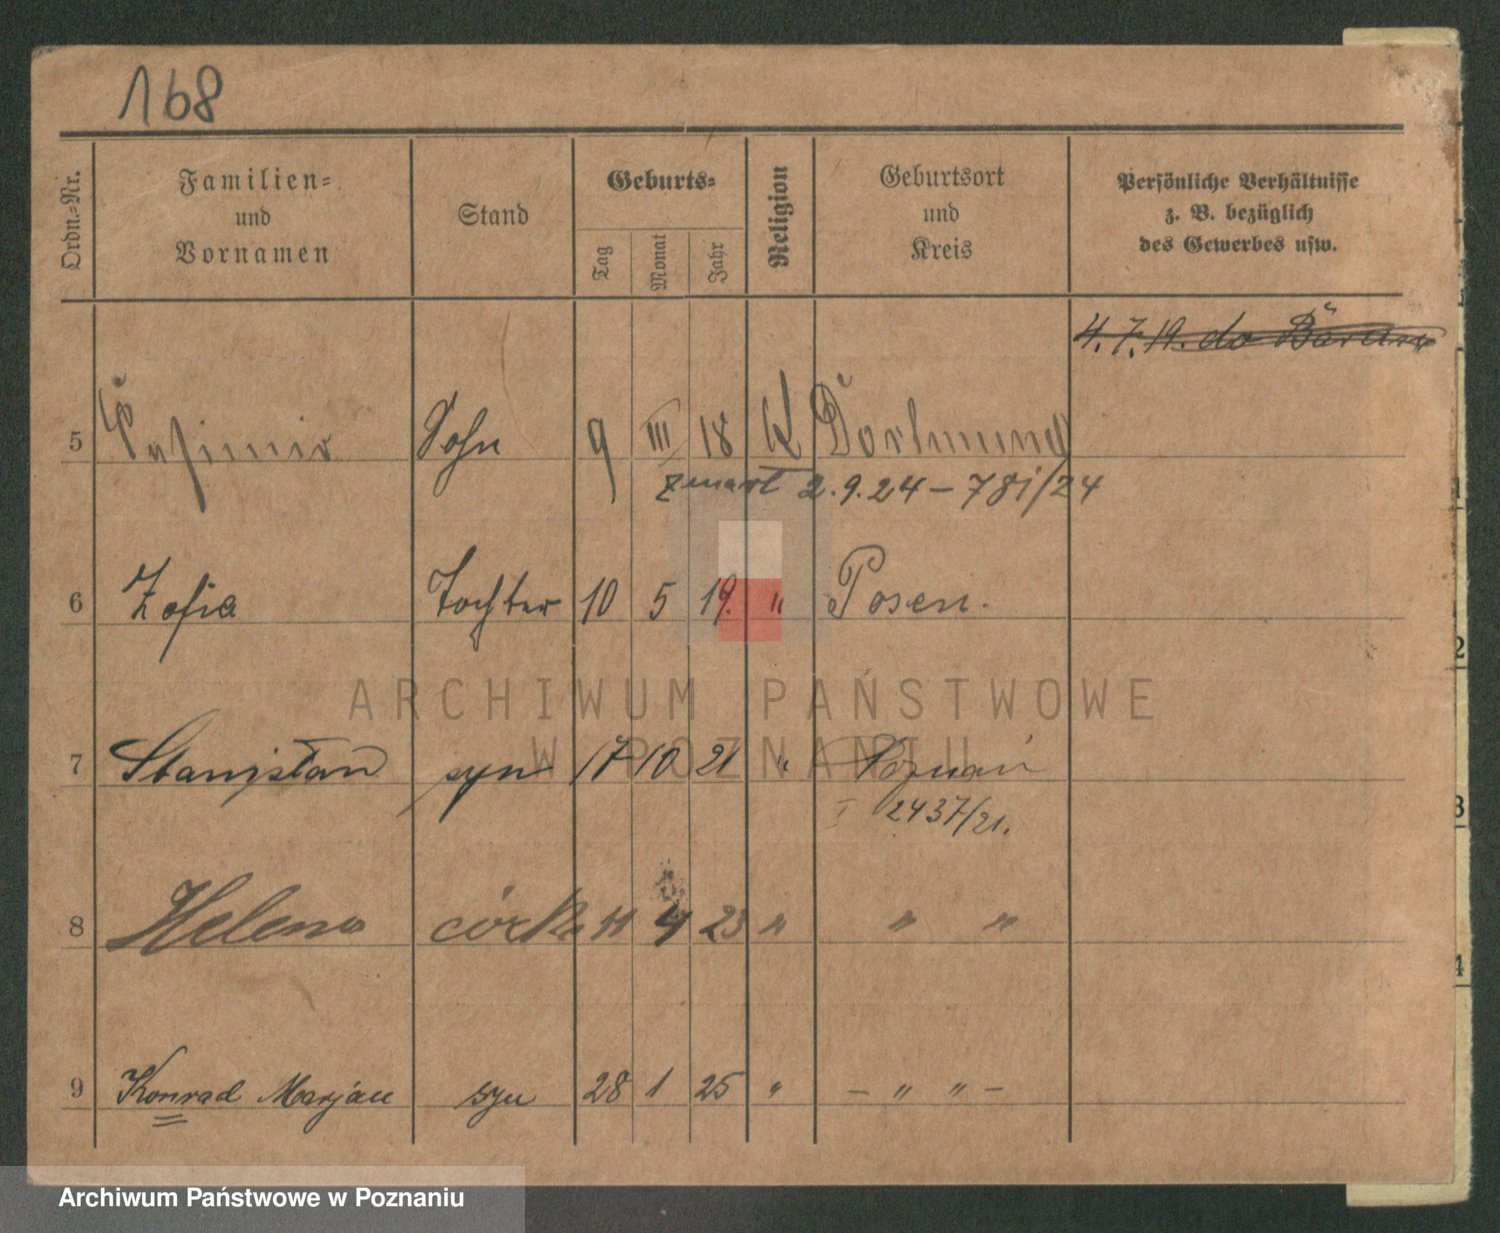 168
Ordn.-Nr.
Familien-
und
Vornamen
Stand
Geburts-
Tag
Monat
Jahr
Religion
Geburtsort
und
Kreis
Persönliche Verhältnisse
z. B. bezüglich
des Gewerbes usw.
4. 7. 19. do
5 Casimir Sohn 9 III 18 K Dortmund
zmarł 2.9.24 – 781/24
6 Zofia Tochter 10 5 19. " Posen.
ARCHIWUM PAŃSTWOWE
W POZNANIU
7 Stanisław syn 17 10 21 " Poznań
I 2437/21.
8 Helena córka 11 4 23 " " "
9 Konrad Marjan syn 28 1 25 " – " " –
2
3
4
Archiwum Państwowe w Poznaniu